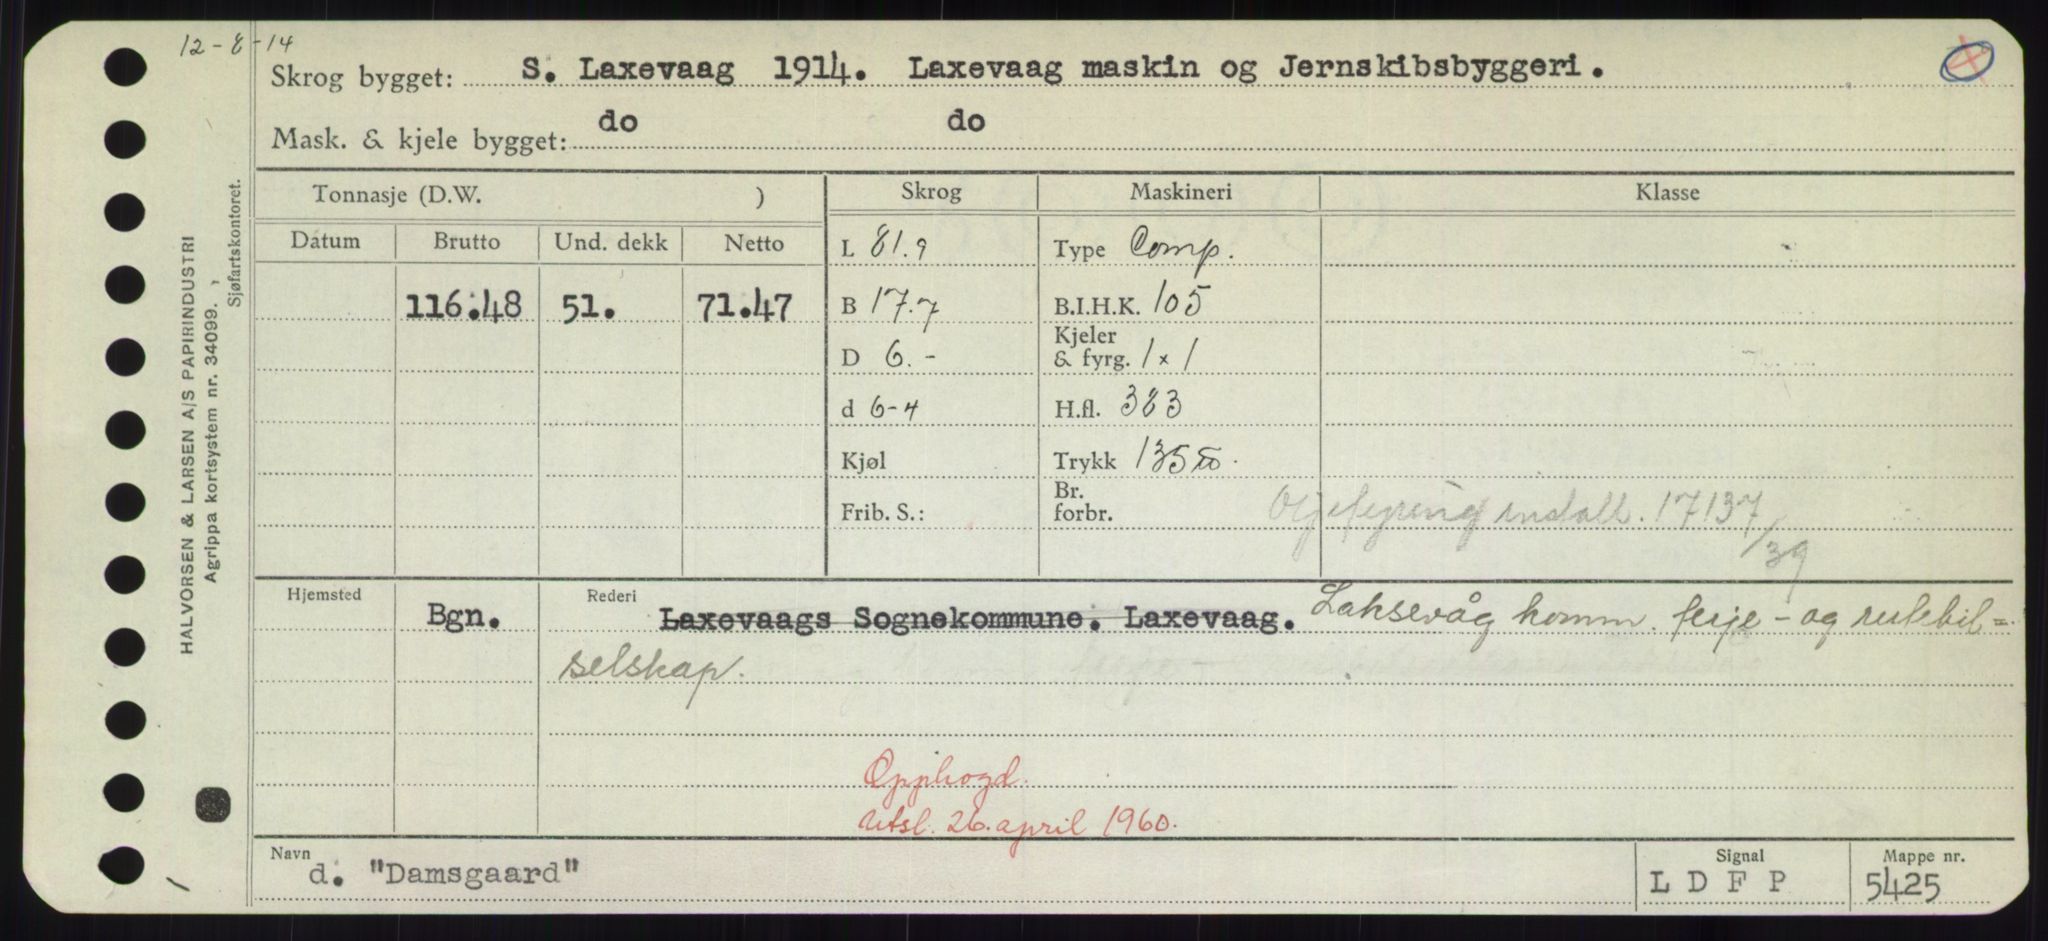 12-8-14
Skrog bygget: S. Laxevaag 1914. Laxevaag maskin og Jernskibsbyggeri.
Mask. & kjele bygget: do do
HALVORSEN & LARSEN A/S PAPIRINDUSTRI
Agrippa kortsystem nr. 34099.
Sjøfartskontoret.
Tonnasje (D.W. ) Skrog Maskineri Klasse
Datum Brutto Und. dekk Netto L 81.9 Type Comp.
116.48 51. 71.47 B 17.7 B.I.H.K. 105
D 6.- Kjeler & fyrg. 1 x 1
d 6-4 H.fl. 383
Kjøl Trykk 135
Frib. S.: Br. forbr. Oljefyring install. 17137/39
Hjemsted Bgn. Rederi Laxevaags Sognekommune. Laxevaag. Laksevåg komm. ferje- og rutebil=
selskap.
Opphogd.
Utsl. 26. april 1960.
Navn d. "Damsgaard" Signal L D F P Mappe nr. 5425